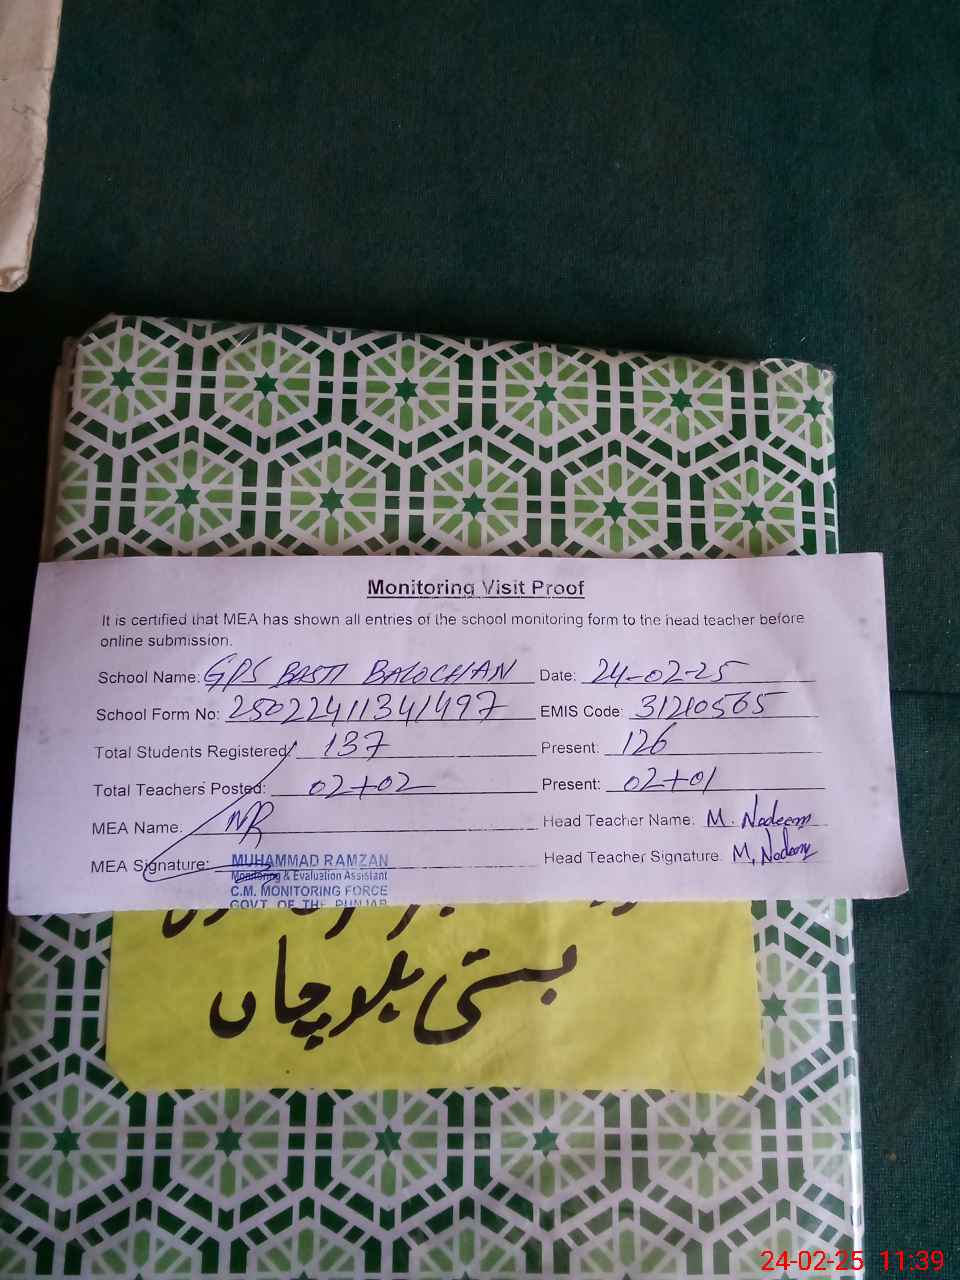 Monitoring Visit Proof
It is certified that MEA has shown all entries of the school monitoring form to the head teacher before
online submission.
School Name: GPS BASTI BALOCHAN Date: 24-02-25
School Form No: 25022411341497 EMIS Code: 31210565
Total Students Registered: 137 Present: 126
Total Teachers Posted: 02+02 Present: 02+01
MEA Name: MR Head Teacher Name: M. Nadeem
MEA Signature: Head Teacher Signature. M. Nadeem
MUHAMMAD RAMZAN
Monitoring & Evaluation Assistant
C.M. MONITORING FORCE
GOVT. OF THE PUNJAB
بستی بلوچاں
24-02-25 11:39